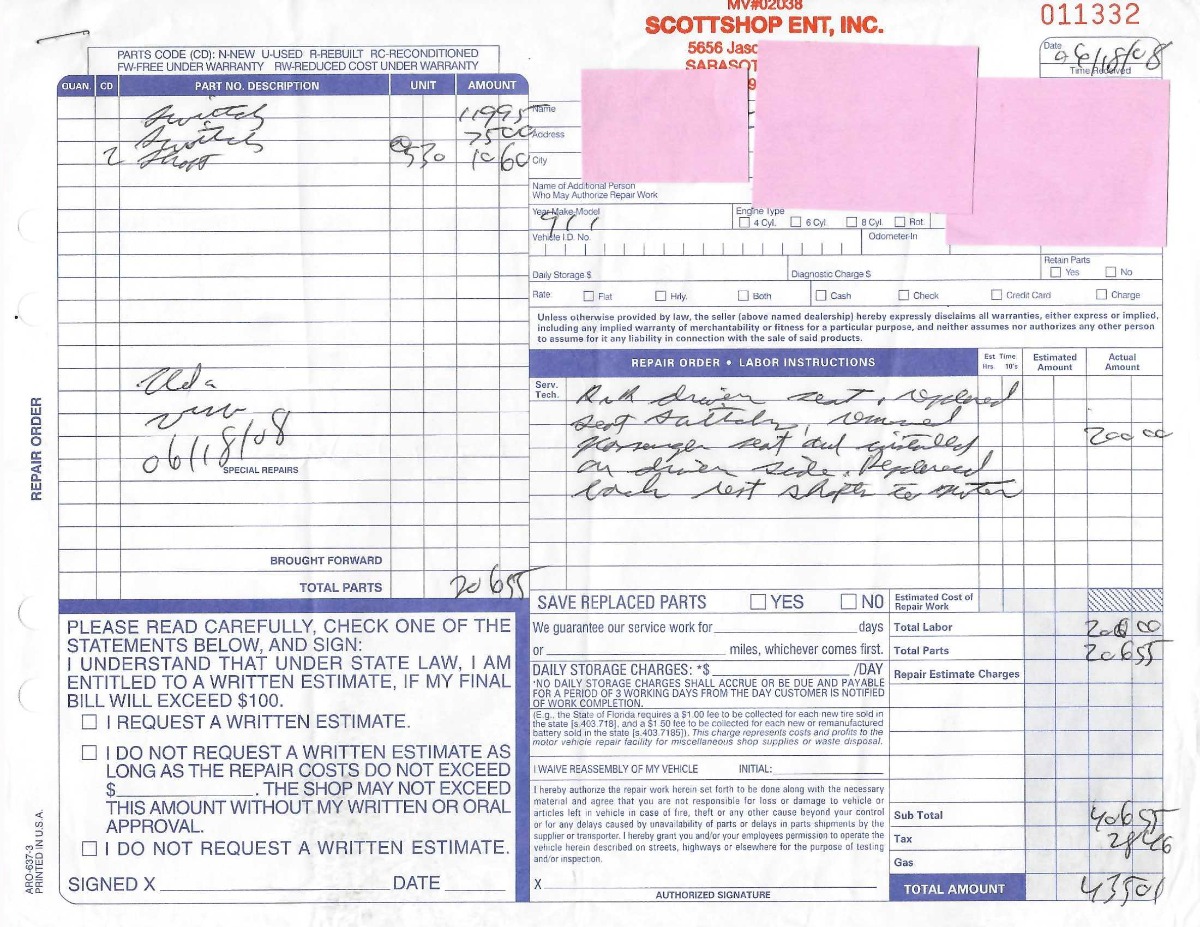 MV#02038
SCOTTSHOP ENT, INC.
5656 Jasc
SARASOT
9
011332
Date 06/18/08
Time Received
PARTS CODE (CD): N-NEW U-USED R-REBUILT RC-RECONDITIONED
FW-FREE UNDER WARRANTY RW-REDUCED COST UNDER WARRANTY
QUAN. CD PART NO. DESCRIPTION UNIT AMOUNT
Switch 119 95
Switch 75 00
2 Shaft @ 5 30 10 60
Visa
06/18/08
SPECIAL REPAIRS
BROUGHT FORWARD
TOTAL PARTS 206 55
REPAIR ORDER
Name
Address
City
Name of Additional Person
Who May Authorize Repair Work
Year-Make-Model 911
Engine Type
4 Cyl. 6 Cyl. 8 Cyl. Rot.
Vehicle I.D. No.
Odometer-In
Daily Storage $ Diagnostic Charge $
Retain Parts
Yes No
Rate Flat Hrly. Both Cash Check Credit Card Charge
Unless otherwise provided by law, the seller (above named dealership) hereby expressly disclaims all warranties, either express or implied,
including any implied warranty of merchantability or fitness for a particular purpose, and neither assumes nor authorizes any other person
to assume for it any liability in connection with the sale of said products.
REPAIR ORDER • LABOR INSTRUCTIONS
Est Time
Hrs 10's
Estimated
Amount
Actual
Amount
Serv.
Tech.
R&R driver seat, replaced
seat switch, removed
passenger seat and installed 200 00
on driver side. Replaced
back rest shafts to motor
PLEASE READ CAREFULLY, CHECK ONE OF THE
STATEMENTS BELOW, AND SIGN:
I UNDERSTAND THAT UNDER STATE LAW, I AM
ENTITLED TO A WRITTEN ESTIMATE, IF MY FINAL
BILL WILL EXCEED $100.
I REQUEST A WRITTEN ESTIMATE.
I DO NOT REQUEST A WRITTEN ESTIMATE AS
LONG AS THE REPAIR COSTS DO NOT EXCEED
$ . THE SHOP MAY NOT EXCEED
THIS AMOUNT WITHOUT MY WRITTEN OR ORAL
APPROVAL.
I DO NOT REQUEST A WRITTEN ESTIMATE.
SIGNED X DATE
ARO-637-3
PRINTED IN U.S.A.
SAVE REPLACED PARTS YES NO
We guarantee our service work for days
or miles, whichever comes first.
DAILY STORAGE CHARGES: *$ /DAY
*NO DAILY STORAGE CHARGES SHALL ACCRUE OR BE DUE AND PAYABLE
FOR A PERIOD OF 3 WORKING DAYS FROM THE DAY CUSTOMER IS NOTIFIED
OF WORK COMPLETION.
(E.g., the State of Florida requires a $1.00 fee to be collected for each new tire sold in
the state [s.403.718], and a $1.50 fee to be collected for each new or remanufactured
battery sold in the state [s.403.7185]). This charge represents costs and profits to the
motor vehicle repair facility for miscellaneous shop supplies or waste disposal.
I WAIVE REASSEMBLY OF MY VEHICLE INITIAL:
I hereby authorize the repair work herein set forth to be done along with the necessary
material and agree that you are not responsible for loss or damage to vehicle or
articles left in vehicle in case of fire, theft or any other cause beyond your control
or for any delays caused by unavailability of parts or delays in parts shipments by the
supplier or transporter. I hereby grant you and/or your employees permission to operate the
vehicle herein described on streets, highways or elsewhere for the purpose of testing
and/or inspection.
X
AUTHORIZED SIGNATURE
Estimated Cost of
Repair Work
Total Labor 200 00
Total Parts 206 55
Repair Estimate Charges
Sub Total 406 55
Tax 28 46
Gas
TOTAL AMOUNT 435 01